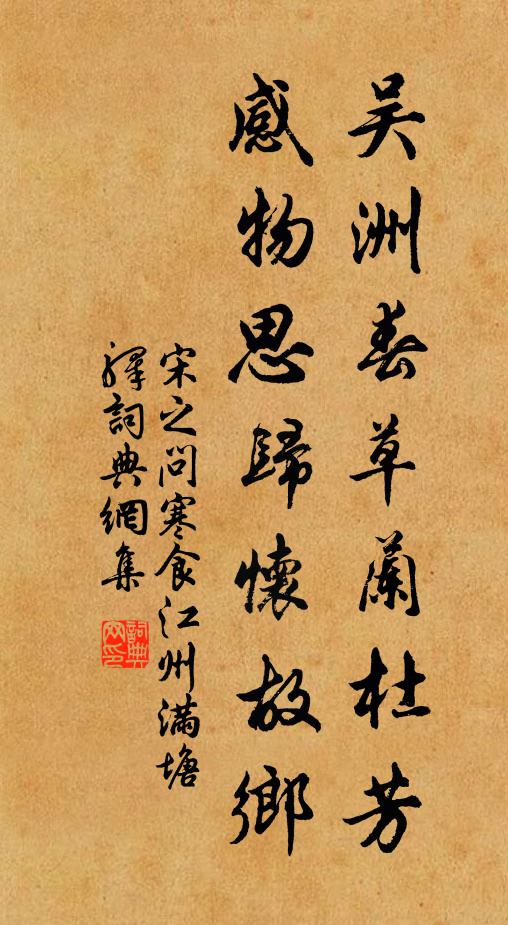 吴洲春草蘭杜芳
感物思歸懷故鄉
宋之问寒食江州滿塘
驛詞典網集
詞典
网印